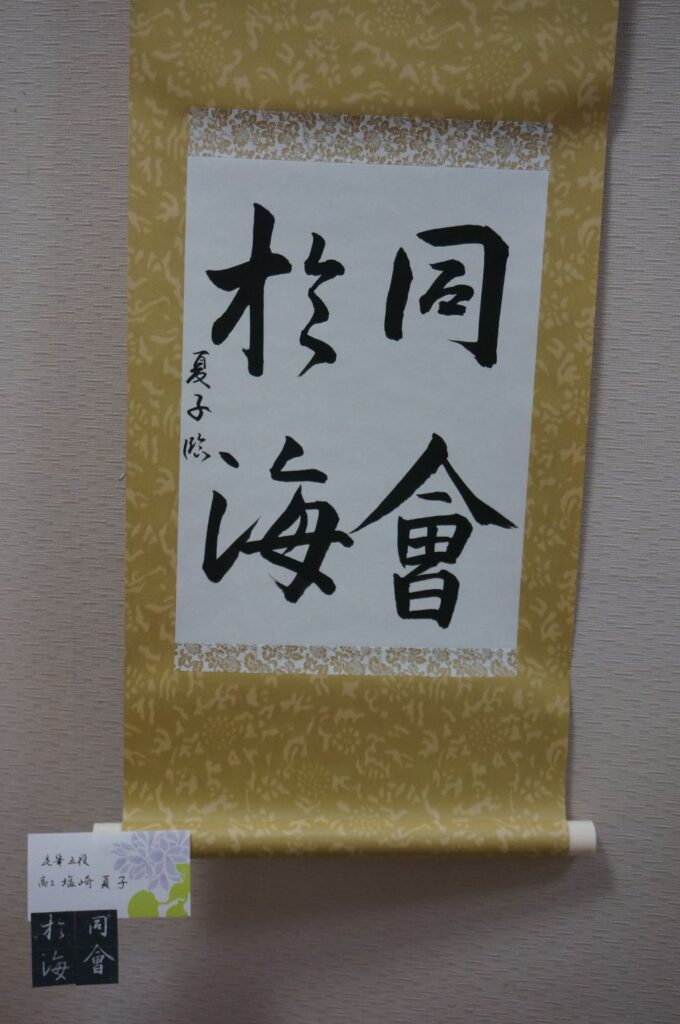 同會
於海
夏子臨
毛筆五段
高二 塩崎 夏子
同會
於海